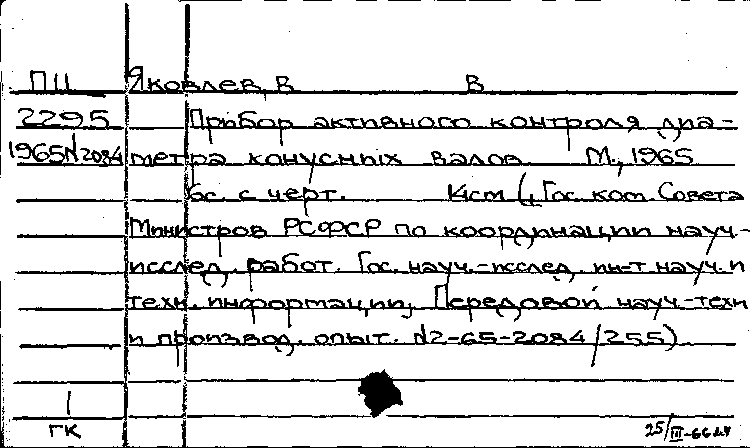 ПЦ Яковлев, В В
2295 Прибор активного контроля диа-
1965N2084 метра конусных валов М., 1965
6с. с черт. (, Гос. ком. Совета
Министров РСФСР по координации науч.-
исслед. работ. Гос. науч.-исслед. ин-т науч. и
техн. информации, Передовой науч.-техн
и производ. опыт. N2-65-2084/255)
1
ГК 25/III-66